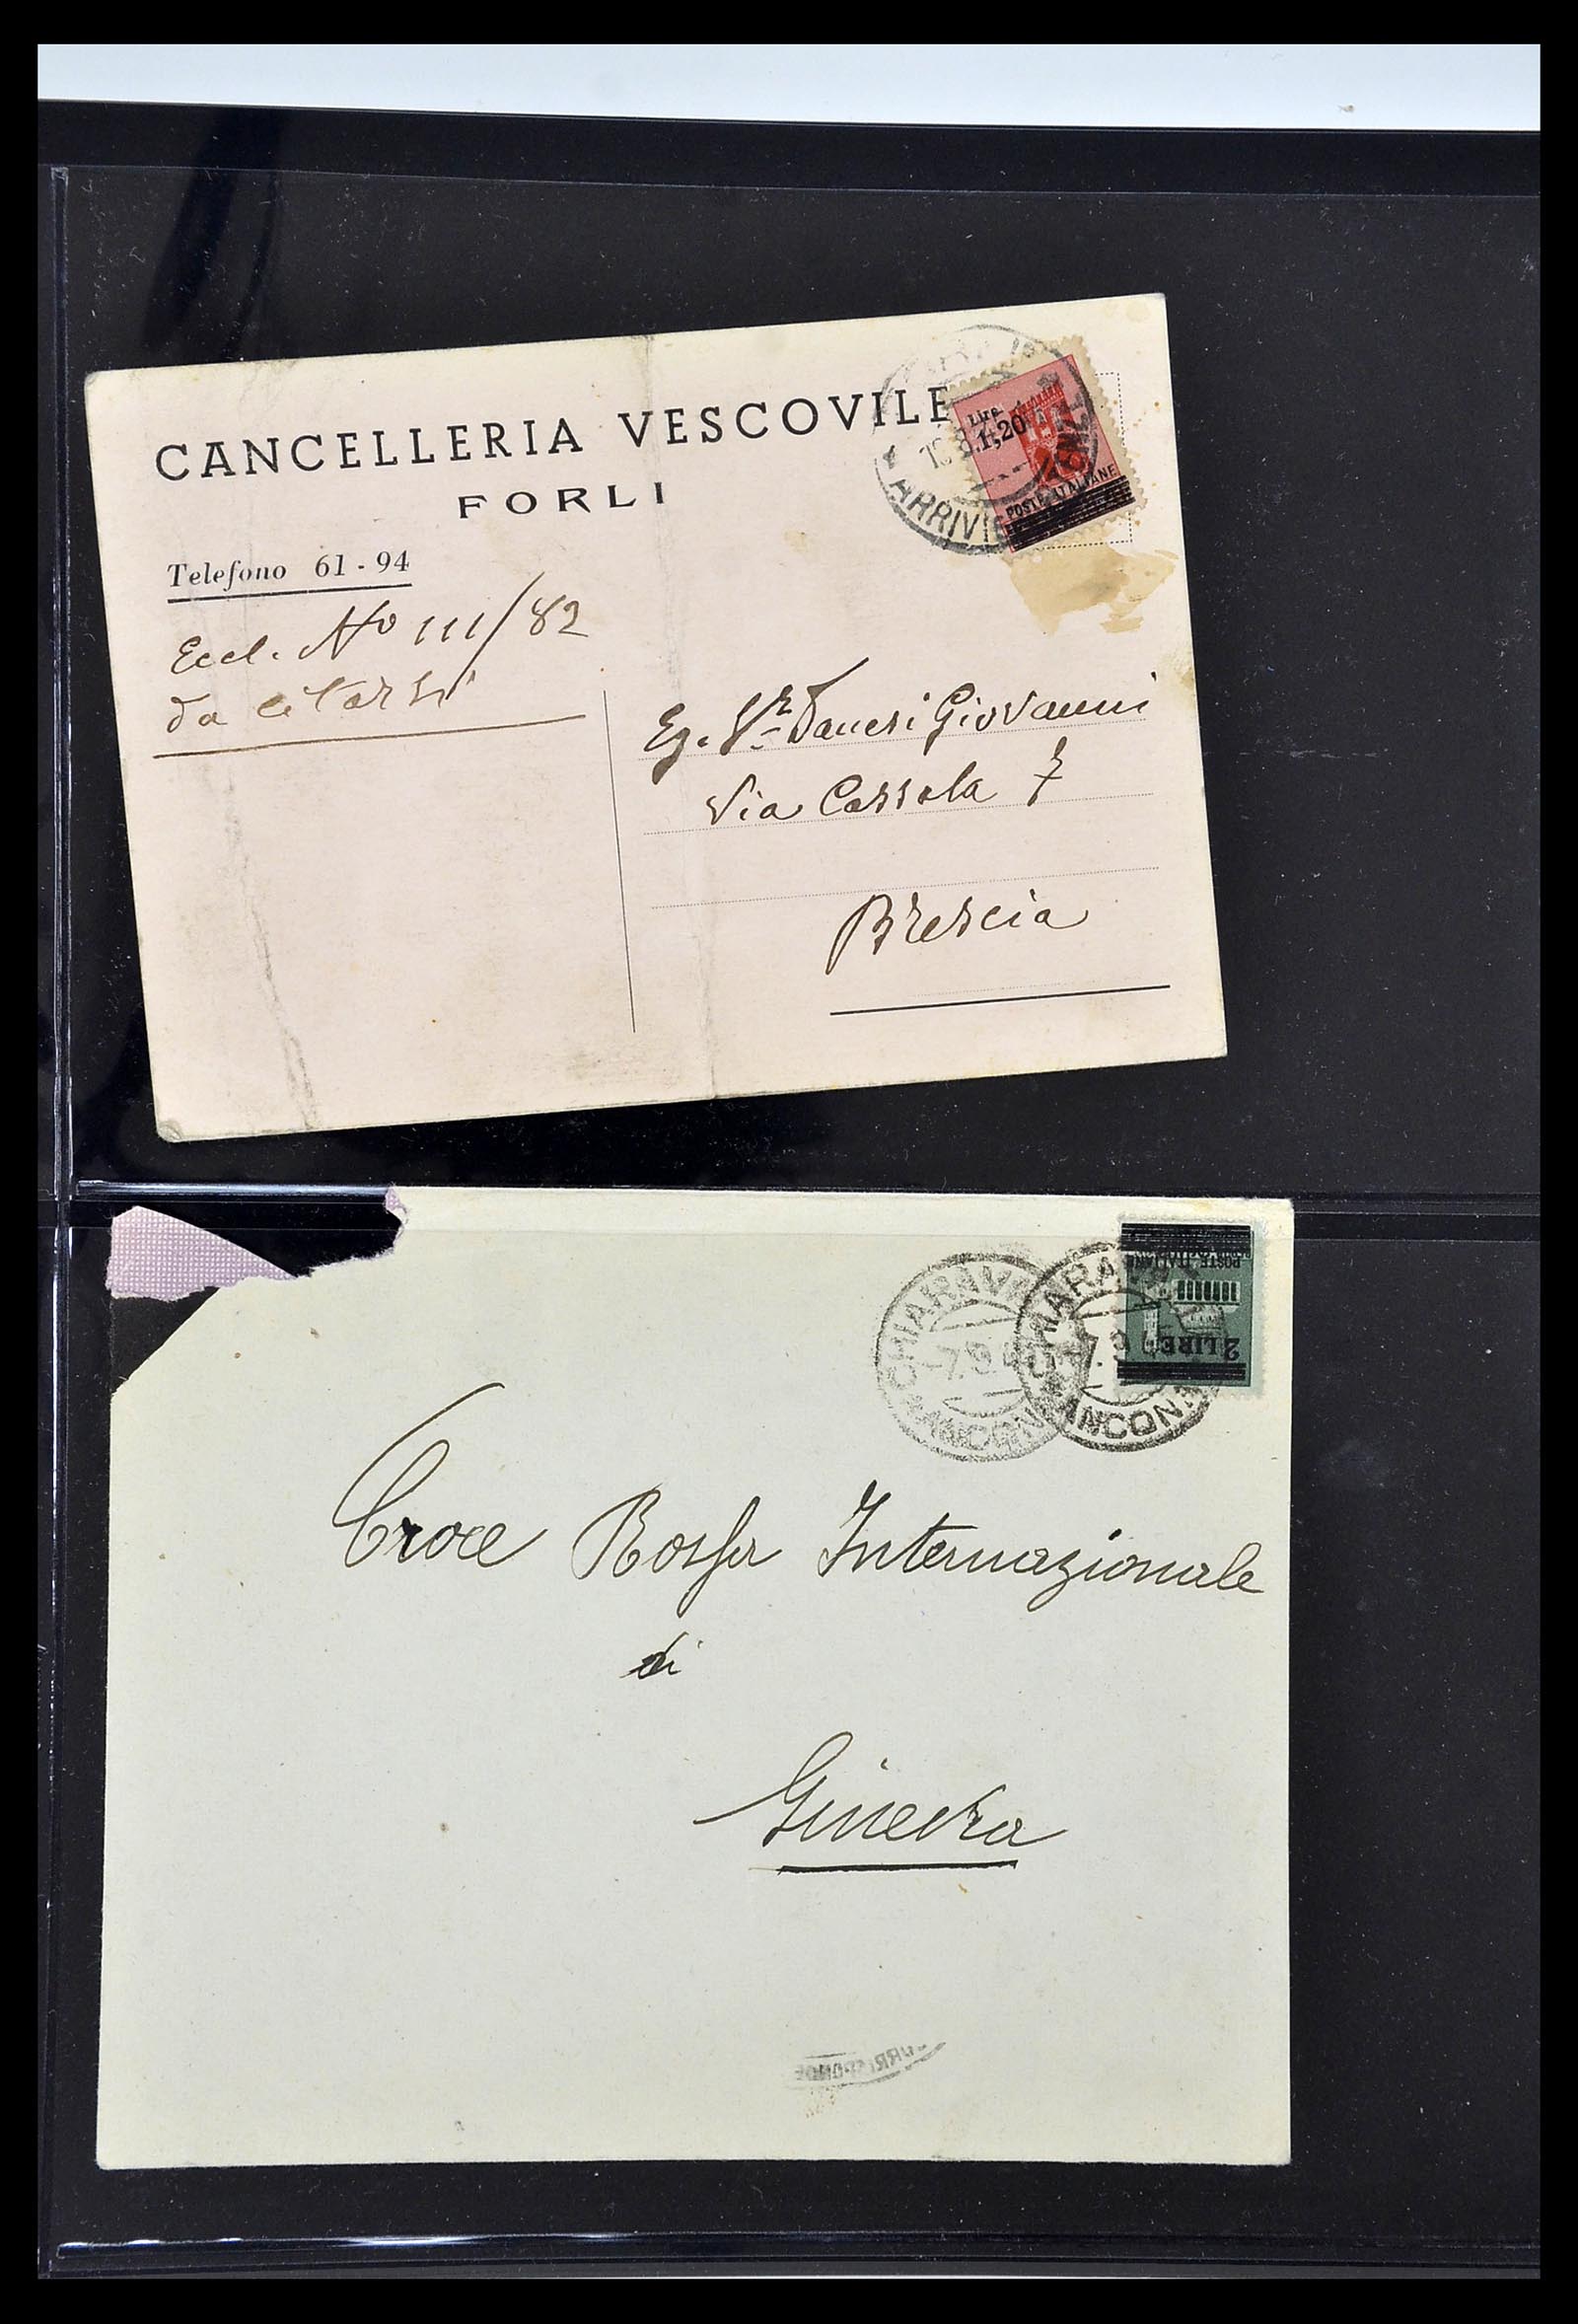 CANCELLERIA VESCOVILE
FORLI
Telefono 61 - 94
Eccl. No III/82
da citarsi
Lire 1,20
POSTE ITALIANE
ARRIVI
Eg. Sr Danesi Giovanni
Via Cassala 7
Brescia
POSTE ITALIANE
2 LIRE
CHIARAVA
7.9.4
ANCONA
HIARA
ANCON
Croce Rossa Internazionale
di
Ginevra